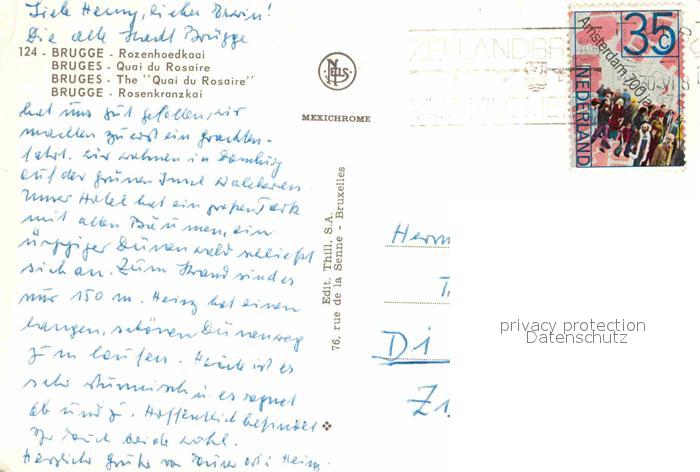 Liebe Henny, lieber Erwin!
Die alte Stadt Brügge
124 - BRUGGE - Rozenhoedkaai
BRUGES - Quai du Rosaire
BRUGES - The "Quai du Rosaire"
BRUGGE - Rosenkranzkai
hat uns gut gefallen, wir
machten zuerst ein Grachten-
fahrt. Wir wohnen in Domburg
auf der grünen Insel Walcheren.
Unser Hotel hat ein großen Park
mit alten Bäumen, ein
üppiger Dünenwald schließt
sich an. Zum Strand sind es
nur 150 m. Heinz hat einen
langen, schönen Dünenweg
zu laufen. Heute ist es
sehr stürmisch u. es regnet
ab und z. Hoffentlich befindet
Ihr Euch beide wohl.
Herzliche Grüße von Heinz
NELS
MEXICHROME
Edit. Thill, S.A.
76, rue de la Senne - Bruxelles
35c
Amsterdam 700 jaar
NEDERLAND
Herrn
Di
privacy protection
Datenschutz